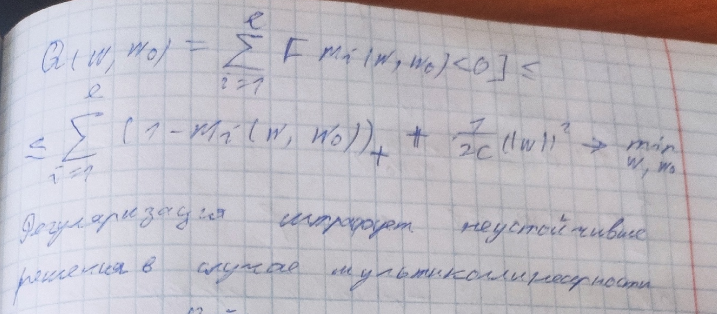 Q(w, w₀) = ∑_{i=1}^{e} [ M_i(w, w₀) < 0 ] ≤
≤ ∑_{i=1}^{e} (1 - M_i(w, w₀))₊ + 1/2C ||w||² → min_{w, w₀}
Регуляризация штрафует неустойчивые
решения в случае мультиколлинеарности